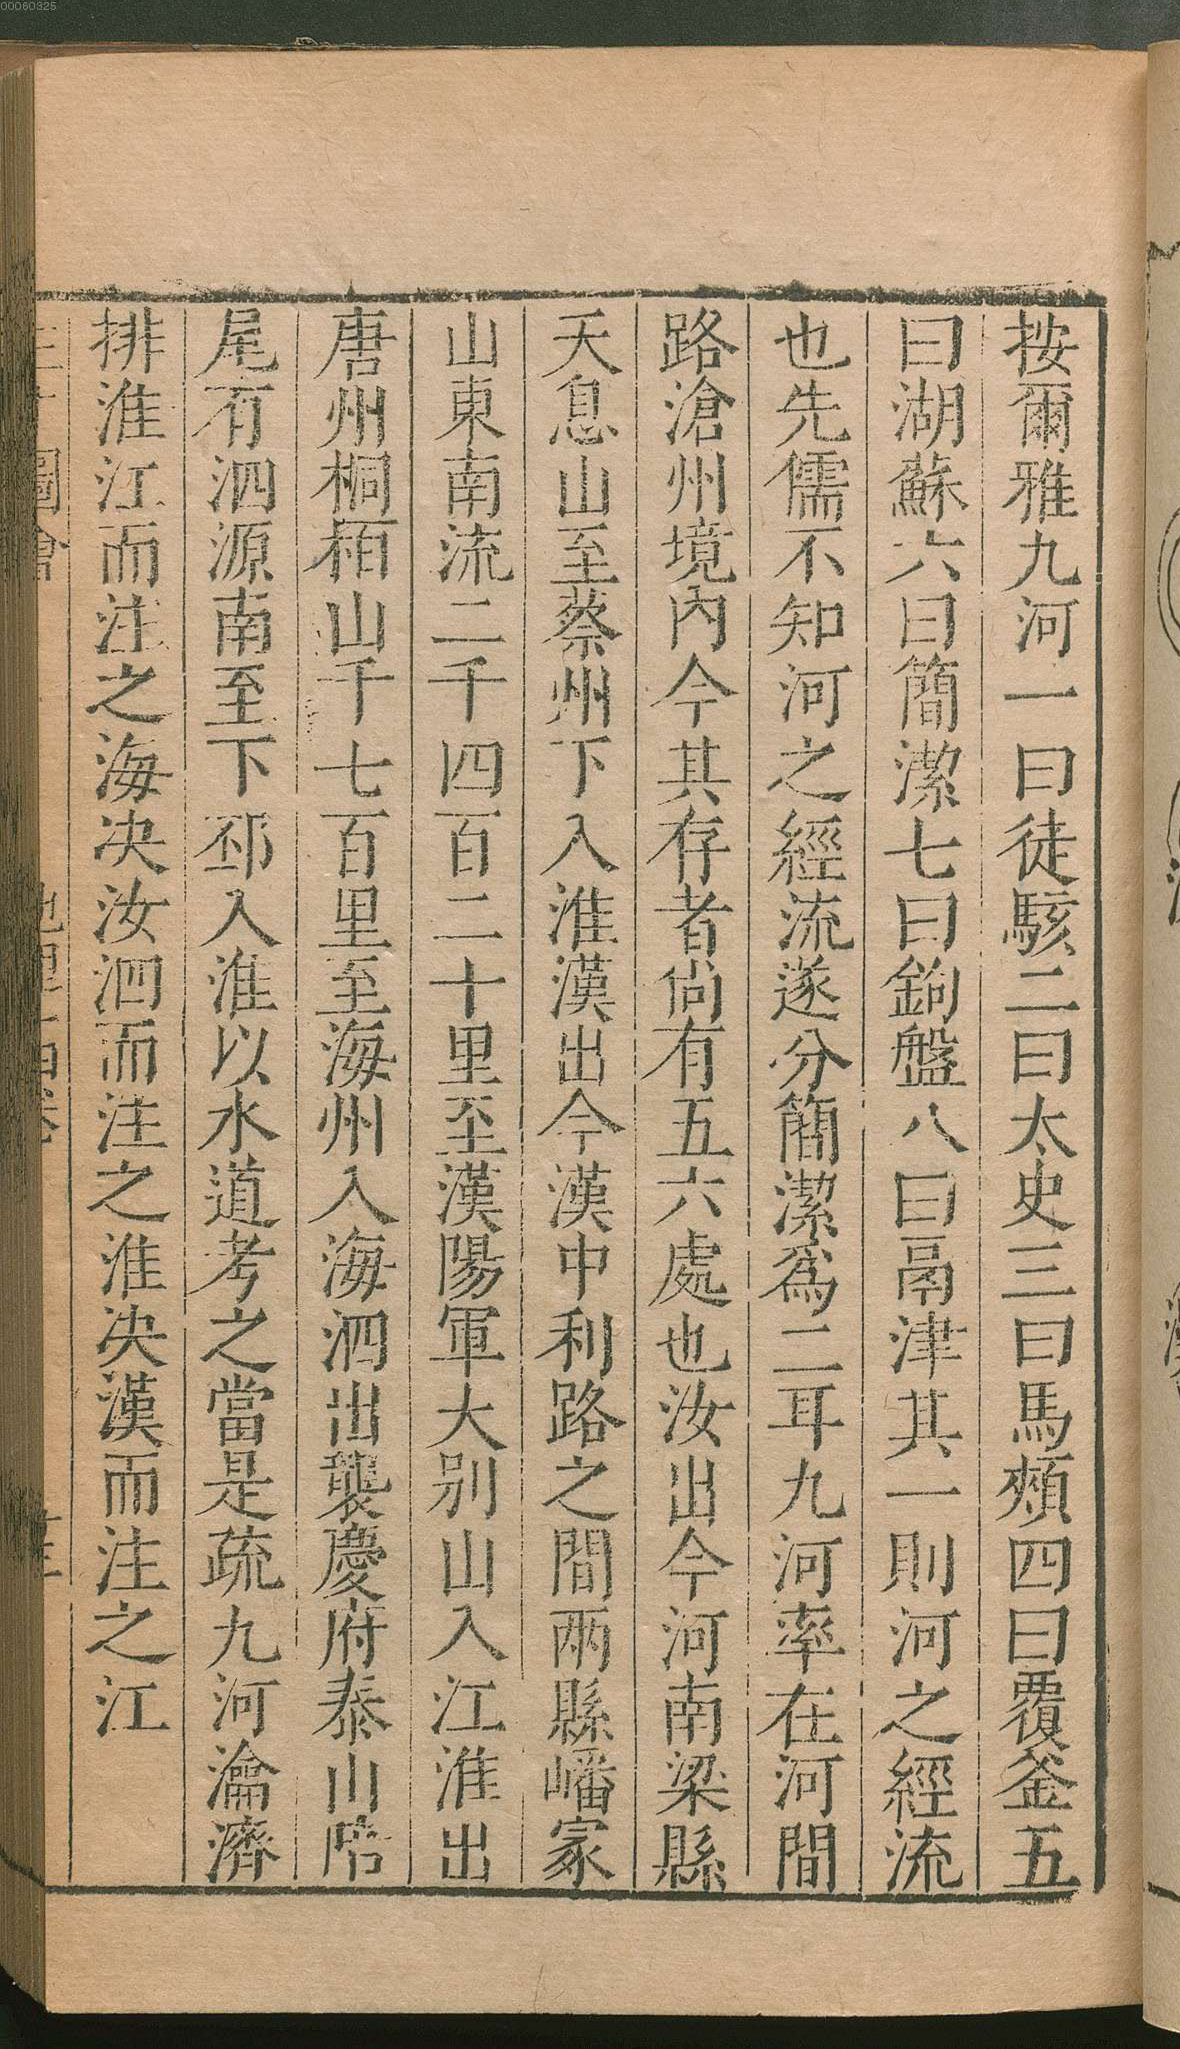 00060325
按爾雅九河一曰徒駭二曰太史三曰馬頰四曰覆釜五
曰湖蘇六曰簡潔七曰鉤盤八曰鬲津其一則河之經流
也先儒不知河之經流遂分簡潔為二耳九河率在河間
路滄州境內今其存者尚有五六處也汝出今河南梁縣
天息山至蔡州下入淮漢出今漢中利路之間兩縣嶓家
山東南流二千四百二十里至漢陽軍大別山入江淮出
唐州桐栢山千七百里至海州入海泗出襲慶府泰山陪
尾有泗源南至下邳入淮以水道考之當是疏九河瀹濟
排淮江而注之海决汝泗而注之淮决漢而注之江
圖會